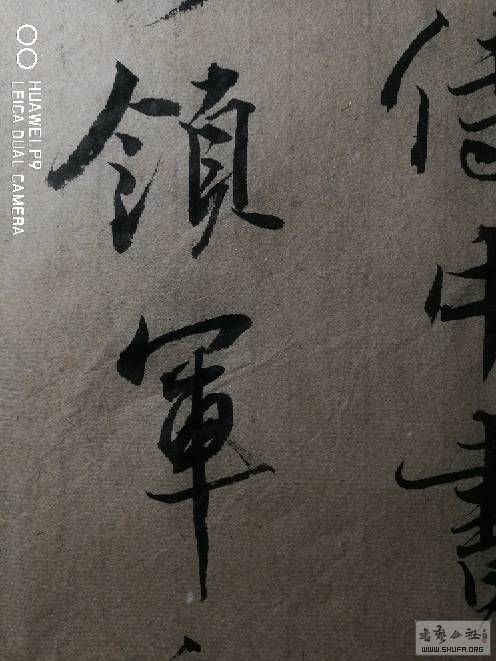 侍中書
領軍
HUAWEI P9
LEICA DUAL CAMERA
书艺公社
WWW.SHUFA.ORG